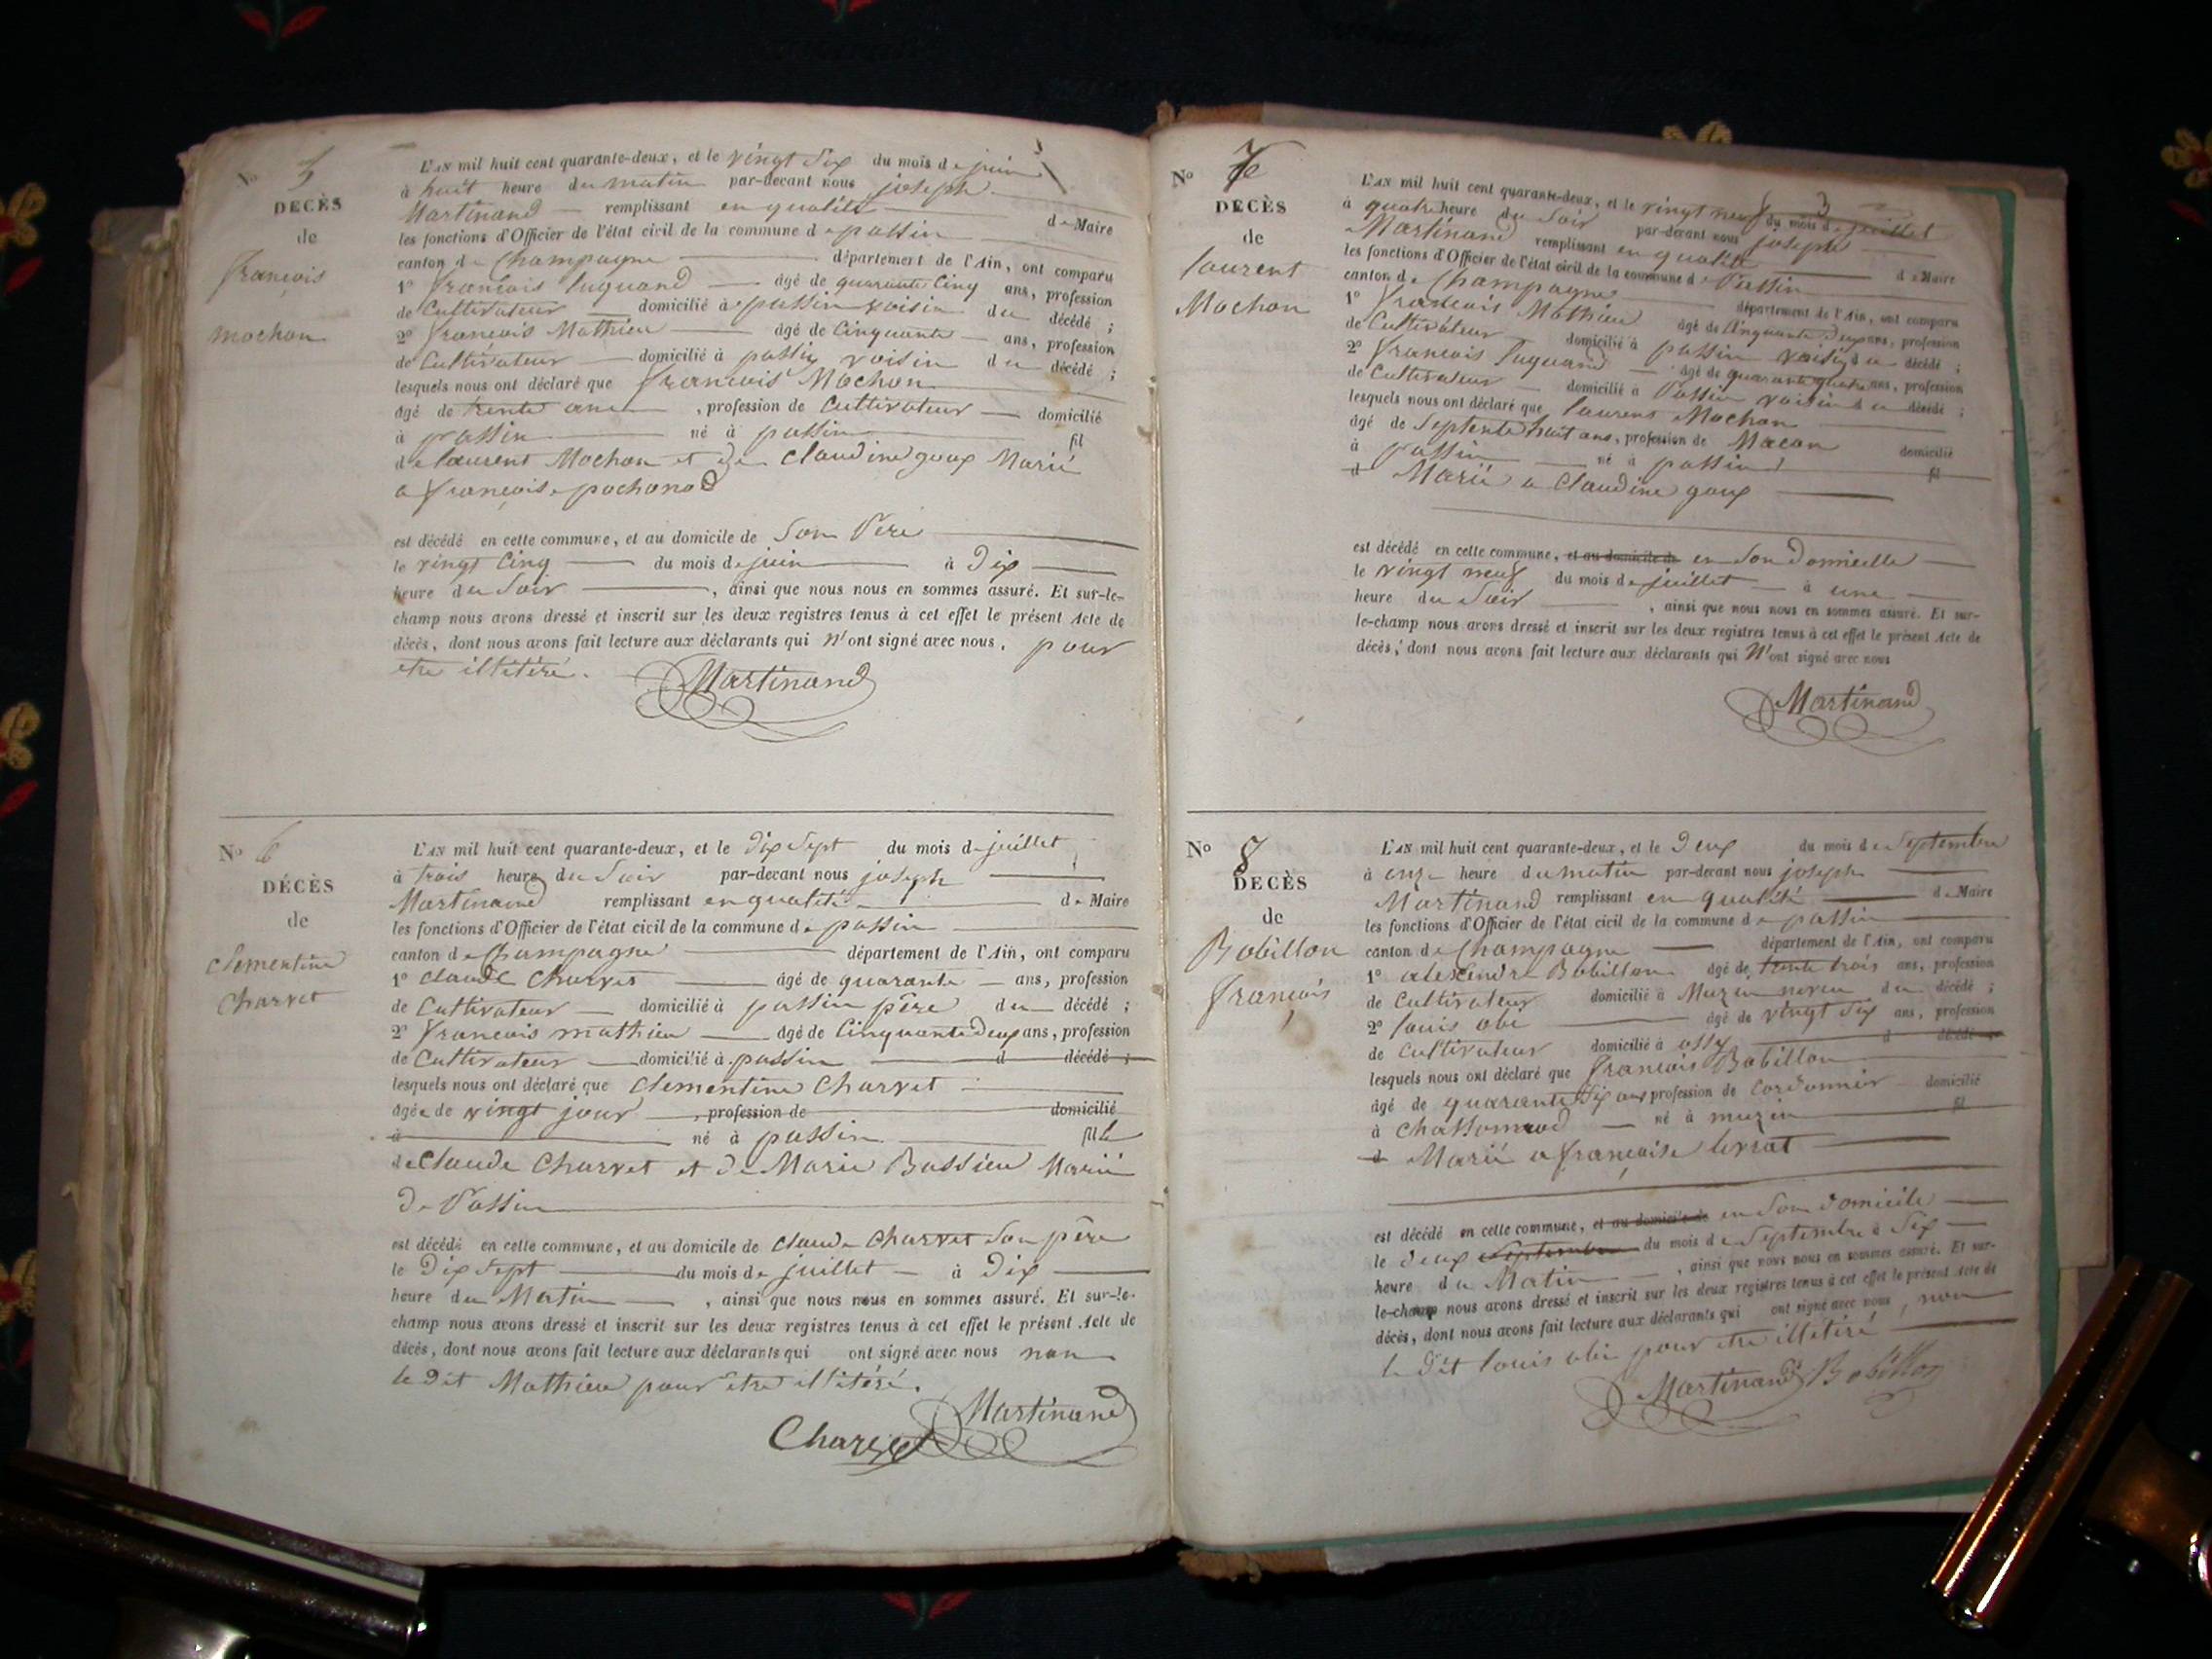 No 5
DECÈS
de
françois
mochon
L'AN mil huit cent quarante-deux, et le vingt six du mois de juin
à huit heure du matin par-devant nous joseph
Martinand remplissant en qualité de Maire
les fonctions d'Officier de l'état civil de la commune de passin
canton de Champagne département de l'Ain, ont comparu
1º francois puquand âgé de quarante Cinq ans, profession
de Cultivateur domicilié à passin voisin du décédé ;
2º francois Mathieu âgé de Cinquante ans, profession
de Cultivateur domicilié à passin voisin du décédé ;
lesquels nous ont déclaré que francois Mochon
âgé de trente ans, profession de Cultivateur domicilié
à passin né à passin fil
de laurent Mochon et de Claudine goux Marié
a françoise pochonod
est décédé en cette commune, et au domicile de Son Pere
le vingt Cinq du mois de juin à Dix
heure du Soir, ainsi que nous nous en sommes assuré. Et sur-le-
champ nous avons dressé et inscrit sur les deux registres tenus à cet effet le présent Acte de
décès, dont nous avons fait lecture aux déclarants qui N'ont signé avec nous, pour
etre illitéré.
Martinand
No 6
DÉCÈS
de
Clementine
Charvet
L'AN mil huit cent quarante-deux, et le Dix Sept du mois de juillet
à trois heure du Soir par-devant nous joseph
Martinand remplissant en qualité de Maire
les fonctions d'Officier de l'état civil de la commune de passin
canton de Champagne département de l'Ain, ont comparu
1º Claude Charvet âgé de quarante ans, profession
de Cultivateur domicilié à passin père du décédé ;
2º francois mathieu âgé de Cinquante Deux ans, profession
de Cultivateur domicilié à passin d décédé ;
lesquels nous ont déclaré que Clementine Charvet
âgée de vingt jour, profession de domicilié
à né à passin fille
de Claude Charvet et de Marie Bassieu Marié
De Passin
est décédé en cette commune, et au domicile de Claude Charvet Son père
le Dix Sept du mois de juillet à Dix
heure du Matin, ainsi que nous nous en sommes assuré. Et sur-le-
champ nous avons dressé et inscrit sur les deux registres tenus à cet effet le présent Acte de
décès, dont nous avons fait lecture aux déclarants qui ont signé avec nous non
le Dit Mathieu pour etre illitéré.
Martinand
Charvet
No 7
DECÈS
de
laurent
Mochon
3
L'AN mil huit cent quarante-deux, et le vingt neuf du mois de juillet
à quatre heure du Soir par-devant nous joseph
Martinand remplissant en qualité de Maire
les fonctions d'Officier de l'état civil de la commune de Passin
canton de Champagne département de l'Ain, ont comparu
1º francois Mathieu âgé de Cinquante Deux ans, profession
de Cultivateur domicilié à passin voisin du décédé ;
2º francois puquand âgé de quarante quatre ans, profession
de Cultivateur domicilié à Passin voisin du décédé ;
lesquels nous ont déclaré que laurent Mochon
âgé de Septente huit ans, profession de Macon domicilié
à passin né à passin fil
d Marié a Claudine goux
est décédé en cette commune, et au domicile de en Son Domicille
le vingt neuf du mois de juillet à une
heure du Soir, ainsi que nous nous en sommes assuré. Et sur-
le-champ nous avons dressé et inscrit sur les deux registres tenus à cet effet le présent Acte de
décès, dont nous avons fait lecture aux déclarants qui N'ont signé avec nous
Martinand
No 8
DECÈS
de
Bobillon
françois
L'AN mil huit cent quarante-deux, et le Deux du mois de Septembre
à onze heure du matin par-devant nous joseph
Martinand remplissant en qualité de Maire
les fonctions d'Officier de l'état civil de la commune de passin
canton de Champagne département de l'Ain, ont comparu
1º alexendre Bobillon âgé de trente trois ans, profession
de Cultivateur domicilié à Muzin neveu du décédé ;
2º louis obi âgé de vingt Six ans, profession
de Cultivateur domicilié à ossy d décédé
lesquels nous ont déclaré que francois Bobillon
âgé de quarante Six ans profession de Cordonnier domicilié
à Chassonnod né à muzin fil
d Marié a françoise levrat
est décédé en cette commune, et au domicile de en Son Domicile
le Deux Septembre du mois de Septembre à Six
heure du Matin, ainsi que nous nous en sommes assuré. Et sur-
le-champ nous avons dressé et inscrit sur les deux registres tenus à cet effet le présent Acte de
décès, dont nous avons fait lecture aux déclarants qui ont signé avec nous, non
le Dit louis obi pour etre illitéré
Martinand Bobillon